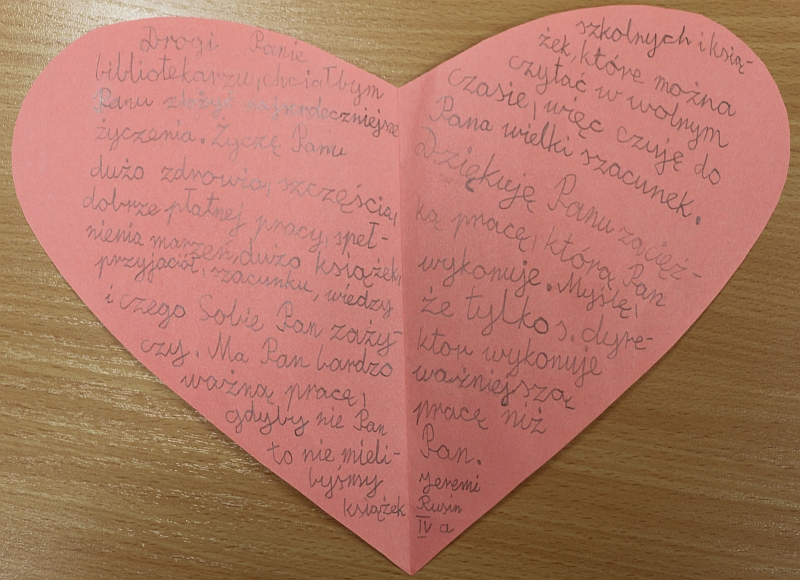 Drogi Panie
bibliotekarzu, chciałbym
Panu złożyć najserdeczniejsze
życzenia. Życzę Panu
dużo zdrowia, szczęścia,
dobrze płatnej pracy, speł-
nienia marzeń, dużo książek,
przyjaciół, szacunku, wiedzy
i czego Sobie Pan zaży-
czy. Ma Pan bardzo
ważną pracę,
gdyby nie Pan
to nie mieli-
byśmy
książek
szkolnych i ksią-
żek, które można
czytać w wolnym
czasie, więc czuję do
Pana wielki szacunek.
Dziękuję Panu za cięż-
ką pracę, którą Pan
wykonuje. Myślę,
że tylko s. dyre-
ktor wykonuje
ważniejszą
pracę niż
Pan.
Jeremi
Rusin
IV a